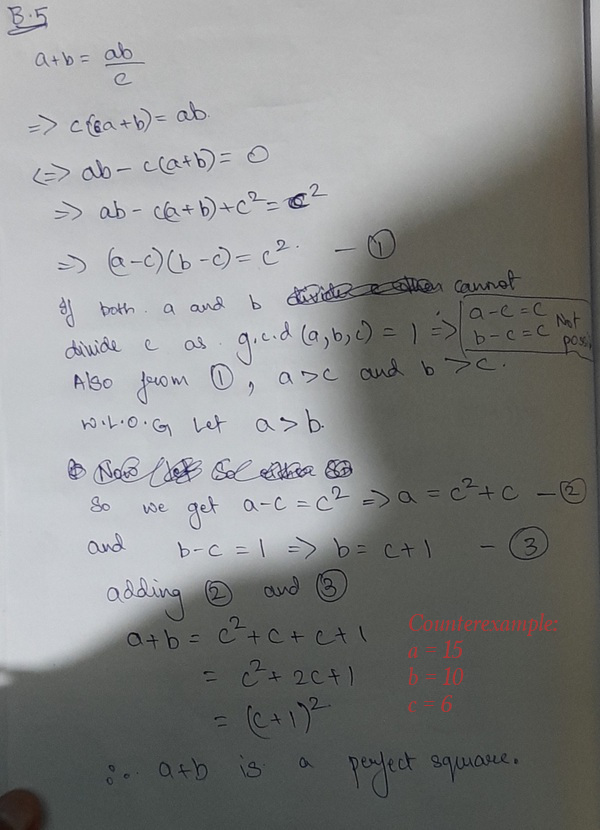 B.5
a+b = ab/c
=> c(a+b) = ab.
<=> ab - c(a+b) = 0
=> ab - c(a+b) + c² = c²
=> (a-c)(b-c) = c². - ①
If both a and b cannot
divide c as g.c.d (a,b,c) = 1 => a-c = c
b-c = c Not
Also from ①, a > c and b > c.
W.L.O.G Let a > b.
So we get a-c = c² => a = c²+c - ②
and b-c = 1 => b = c+1 - ③
adding ② and ③
a+b = c²+c+c+1
= c²+2c+1
= (c+1)².
∴ a+b is a perfect square.
Counterexample:
a = 15
b = 10
c = 6